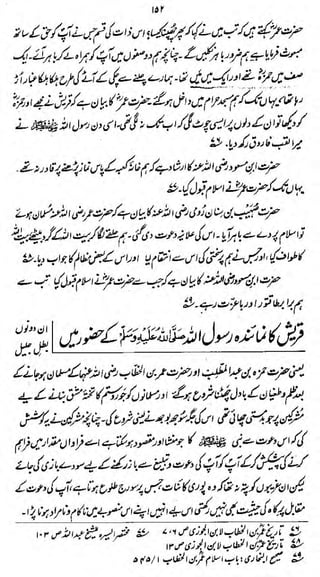 ۱۵۲
حضرت عمرؓ کہتے ہیں کہ تب میں نے کہا کہ پھر چھپنا کیسا؟ اس ذات کی قسم جس نے آپؐ کو حق کے ساتھ
مبعوث فرمایا ہے ہم ضرور باہر نکلیں گے۔ چنانچہ ہم دو صفوں میں آپؐ کو ہمراہ لے کر باہر آئے۔ ایک
صف میں حمزہؓ تھے اور ایک میں میں تھا۔ ہمارے چلنے سے چکی کے آٹے کی طرح ہلکا ہلکا غبار اڑ
رہا تھا یہاں تک کہ ہم مسجد حرام میں داخل ہو گئے۔ حضرت عمرؓ کا بیان ہے کہ قریش نے مجھے اور حمزہؓ
کو دیکھا تو ان کے دلوں پر ایسی چوٹ لگی کہ اب تک نہ لگی تھی۔ اسی دن رسول اللہ ﷺ نے
میرا لقب فاروق رکھ دیا۔ ۷۶
حضرت ابن مسعود رضی اللہ عنہ کا ارشاد ہے کہ ہم خانہ کعبہ کے پاس نماز پڑھنے پر قادر نہ تھے۔
یہاں تک کہ حضرت عمرؓ نے اسلام قبول کیا۔ ۷۷
حضرت صہیب بن سنان رومی رضی اللہ عنہ کا بیان ہے کہ حضرت عمر رضی اللہ عنہ مسلمان ہوئے
تو اسلام پردے سے باہر آیا۔ اس کی علانیہ دعوت دی گئی۔ ہم حلقے لگا کر بیت اللہ کے گرد بیٹھے، بیت اللہ
کا طواف کیا، اور جس نے ہم پر سختی کی اس سے انتقام لیا اور اس کے بعض مظالم کا جواب دیا۔ ۷۸
حضرت ابن مسعود رضی اللہ عنہ کا بیان ہے کہ جب سے حضرت عمرؓ نے اسلام قبول کیا تب سے
ہم برابر طاقتور اور باعزت رہے۔ ۷۹
قریش کا نمائندہ رسول اللہ صلی اللہ علیہ وسلم کے حضور میں
ان دونوں بطل جلیل
یعنی حضرت حمزہ بن عبد المطلب اور حضرت عمر بن الخطاب رضی اللہ عنہما کے مسلمان ہو جانے کے
بعد ظلم و طغیان کے بادل چھٹنا شروع ہو گئے اور مسلمانوں کو جور و ستم کا تختۂ مشق بنانے کے لیے
مشرکین پر جو بدمستی چھائی تھی اس کی جگہ سوجھ بوجھ نے لینی شروع کی۔ چنانچہ مشرکین نے یہ کوشش
کی کہ اس دعوت سے نبی ﷺ کا جو منشا اور مقصود ہو سکتا ہے اسے فراواں مقدار میں فراہم
کرنے کی پیشکش کر کے آپؐ کو آپؐ کی دعوت و تبلیغ سے باز رکھنے کے لیے سودے بازی کی جائے
لیکن ان غریبوں کو پتہ نہ تھا کہ وہ پوری کائنات جس پر سورج طلوع ہوتا ہے، آپؐ کی دعوت کے
مقابل پرِ کاہ کی حیثیت بھی نہیں رکھتی اس لیے انہیں اپنے اس منصوبے میں ناکام و نامراد ہونا پڑا۔
۷۶ تاریخ عمر بن الخطاب لابن الجوزی ص ۶، ۷ ۷۷ مختصر السیرۃ للشیخ عبد اللہ ص ۱۰۳
۷۸ تاریخ عمر بن الخطاب لابن الجوزی ص ۱۳
۷۹ صحیح البخاری: باب اسلام عمر بن الخطاب ۱/۵۴۵